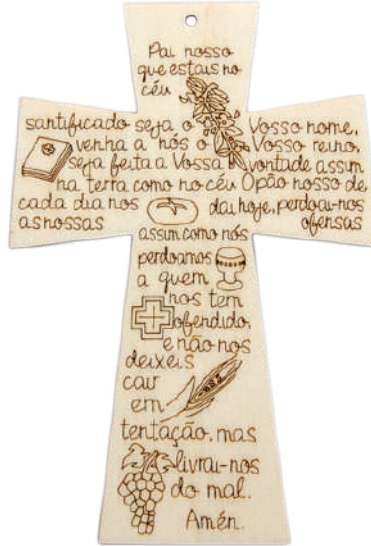 Pai nosso
que estais no
céu
santificado seja o Vosso nome,
venha a nós o Vosso reino,
seja feita a Vossa vontade assim
na terra como no céu O pão nosso de
cada dia nos dai hoje, perdoai-nos
as nossas ofensas
assim como nós
perdoamos
a quem
nos tem
ofendido,
e não nos
deixeis
cair
em
tentação, mas
livrai-nos
do mal.
Amén.